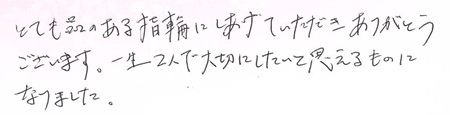 とても品のある指輪にしあげていただきありがとう
ございます。一生2人で大切にしたいと思えるものに
なりました。